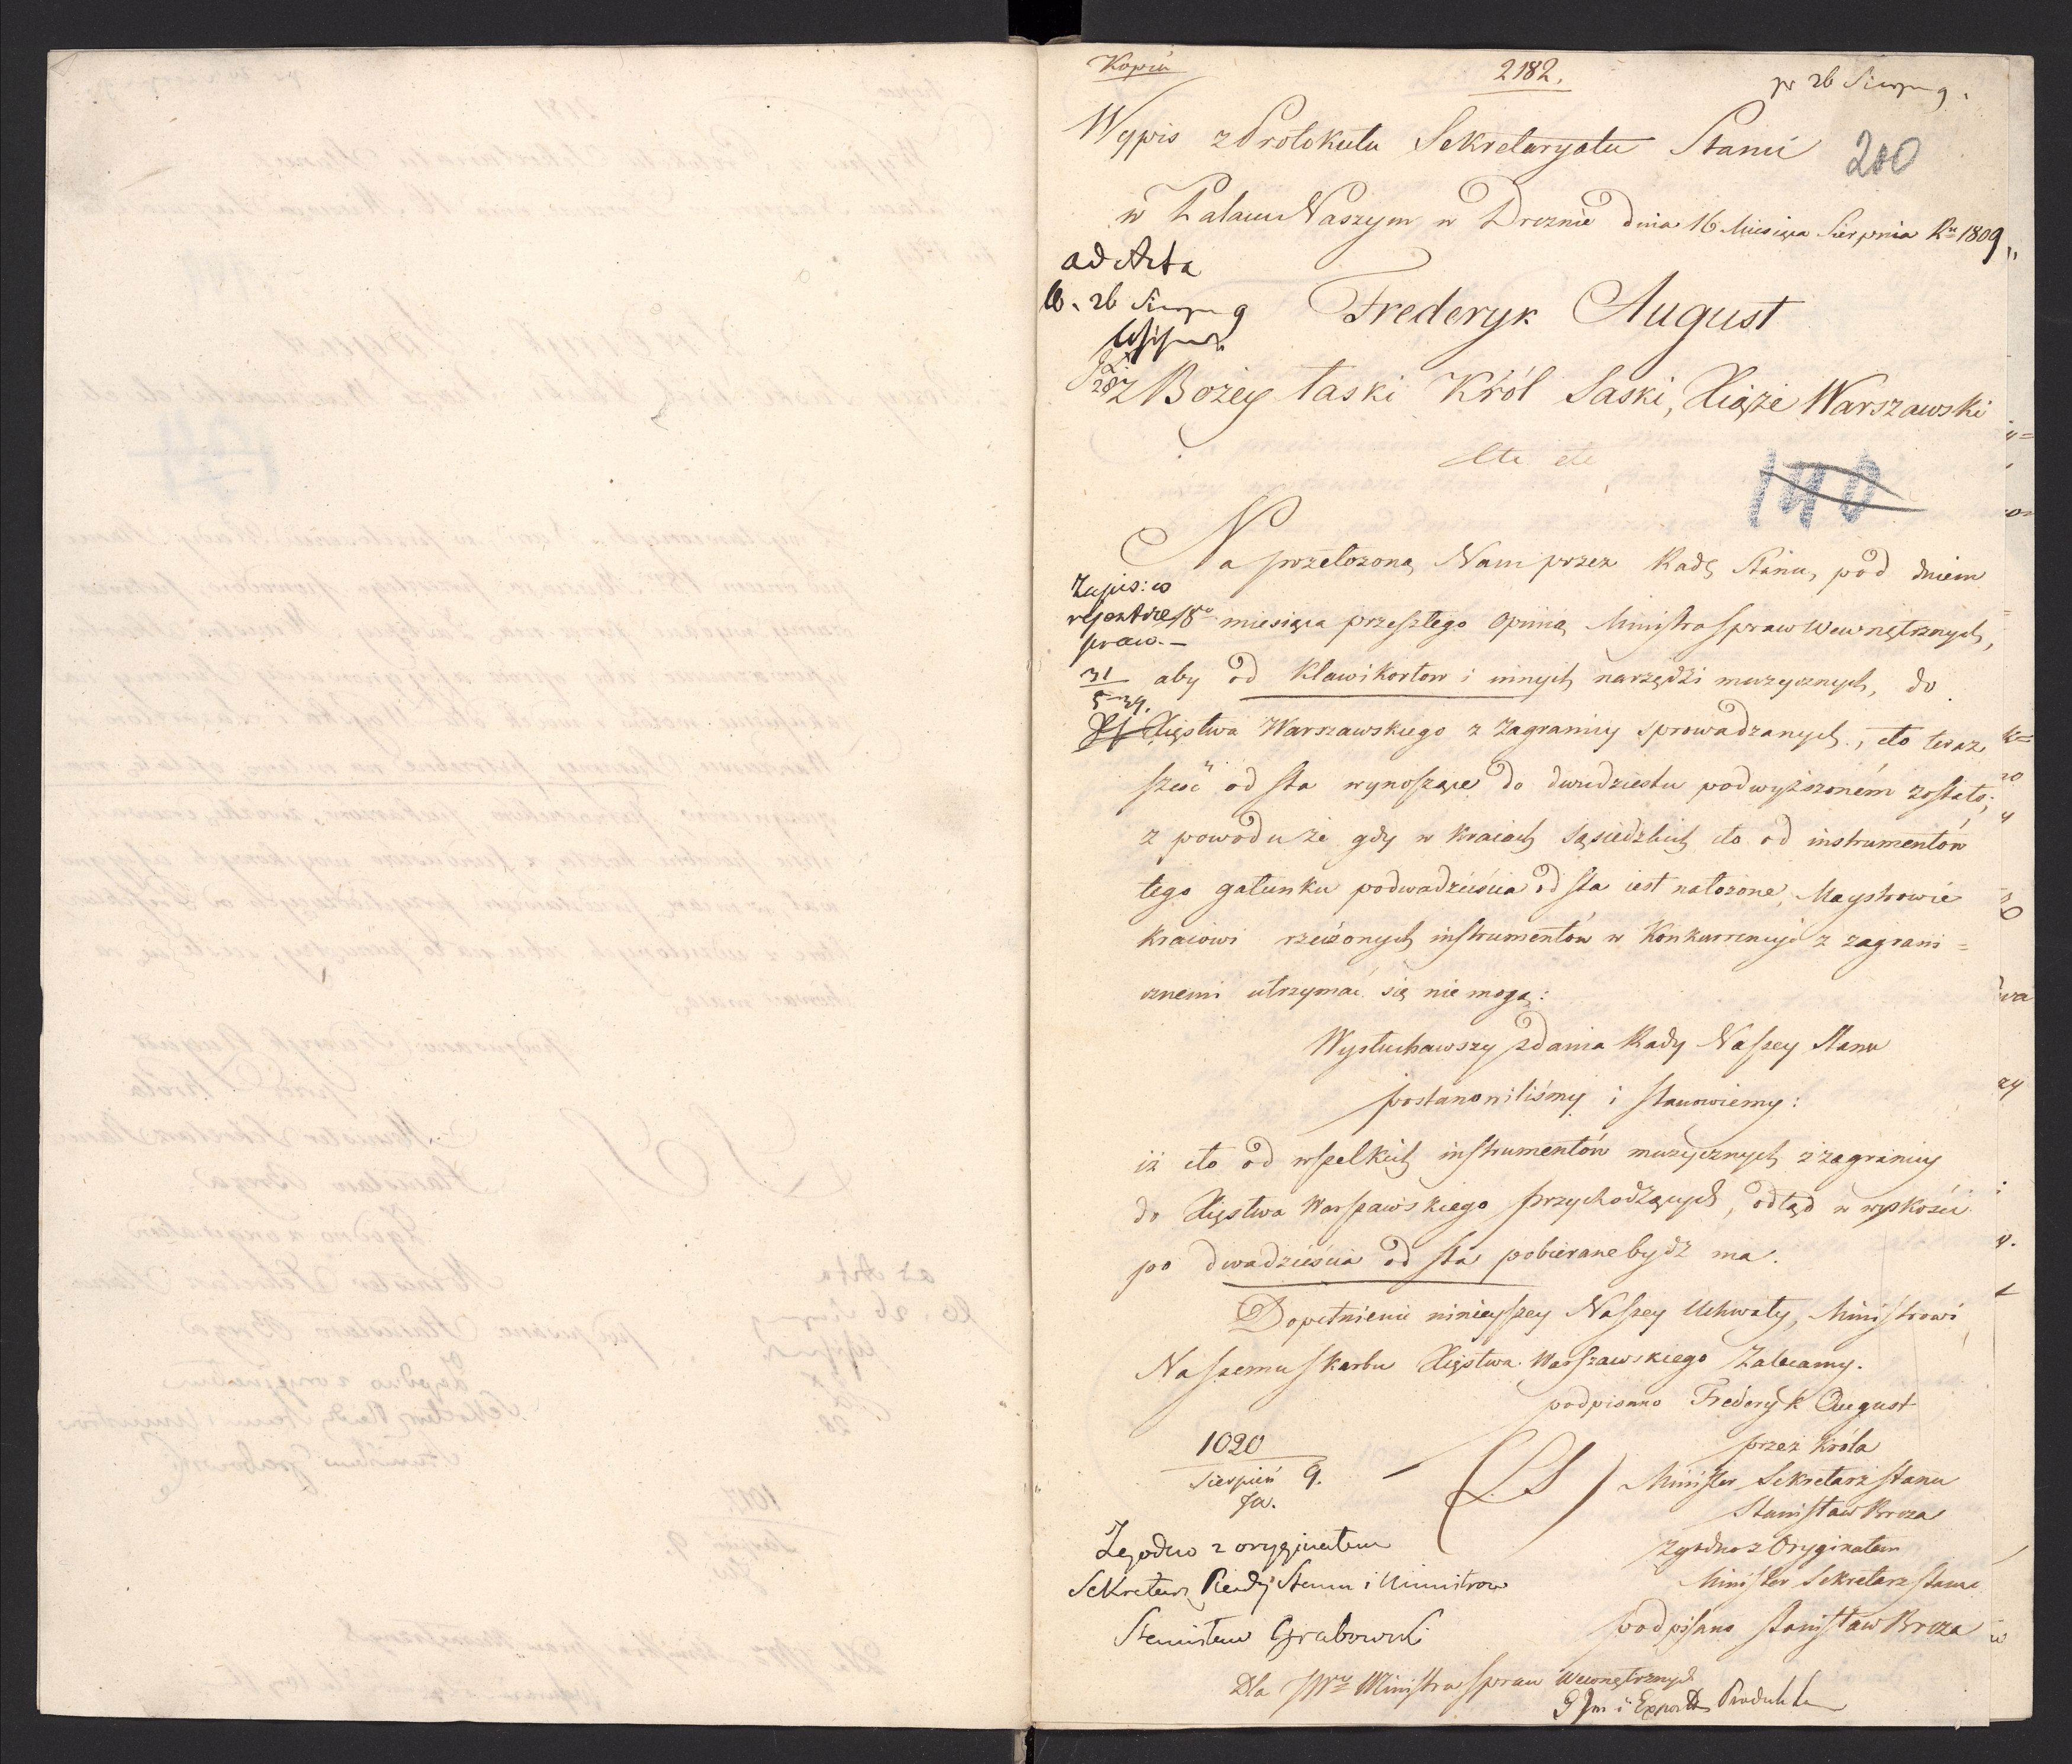 Kopia
2182.
pr 26 Sierpn 9.
Wypis z Protokułu Sekretaryatu Stanu
200
w Pałacu Naszym w Dreznie dnia 16 Miesiąca Sierpnia Ru 1809
ad Acta
26 Sierpn 9
Frederyk August
28
z Bożey łaski Król Saski, Xiąże Warszawski
etc etc
140
Na przełożoną Nam przez Radę Stanu, pod dniem
Zapis: w
rejestrze
praw. –
18go miesiąca przeszłego Opinią Ministra Spraw Wewnętrznych,
31
5 34.
aby od Klawikortow i innych narzędzi muzycznych, do
Xięstwa Warszawskiego z zagranicy sprowadzanych, cło teraz
sześć od sta wynoszące do dwudziestu podwyższoném zostało;
z powodu że gdy w kraiach sąsiedzkich cło od instrumentów
tego gatunku po dwadzieścia od sta iest nałożone, Maystrowie
kraiowi rzeczonych instrumentów w Konkurrencyi z zagrani=
cznemi utrzymać się nie mogą:
Wysłuchawszy zdania Rady Naszey Stanu
postanowiliśmy i stanowiemy:
iż cło od wszelkich instrumentów muzycznych z zagranicy
do Xięstwa Warszawskiego przychodzących, odtąd w wyskości
po dwadzieścia od sta pobierane bydź ma.
Dopełnienie ninieyszey Naszey Uchwały, Ministrowi
Naszemu Skarbu Xięstwa Warszawskiego Zalecamy.
podpisano Frederyk August
1020
Sierpień 9.
przez Króla
(LS)
Minister Sekretarz Stanu
Stanisław Breza
Zgodno z oryginałem
Zgodno z Oryginałem
Sekretarz Rady Stanu i Ministrow
Minister Sekretarz Stanu
Stanisław Grabowski
podpisano Stanisław Breza
Dla JWo Ministra Spraw Wewnętrznych
Im i Export Produktu